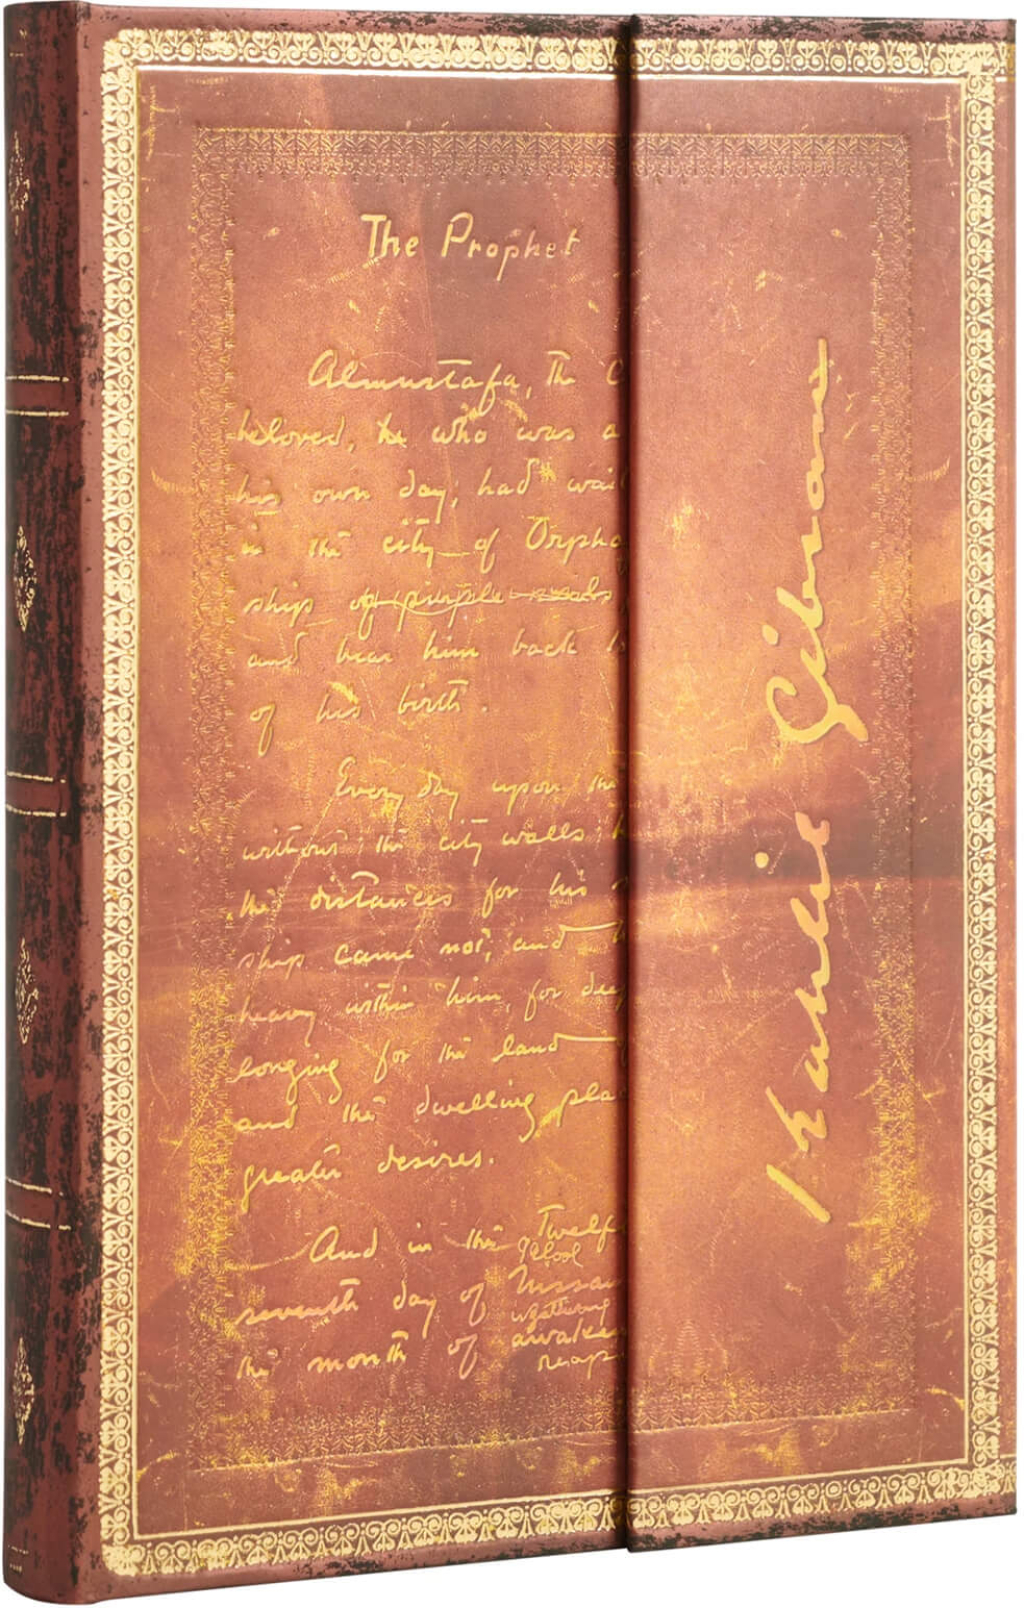 The Prophet
Almustafa, the C
beloved, he who was a
his own day, had wait
in the city of Orpha
ship of purple
and bear him back to
of his birth.
Every day upon the
without the city walls h
the distances for his
ship came not, and h
heavy within him, for deep
longing for the land
and the dwelling pla
greater desires.
And in the Twelf
Ielool
seventh day of Nissan
the month of awaken
reap
Kahlil Gibran